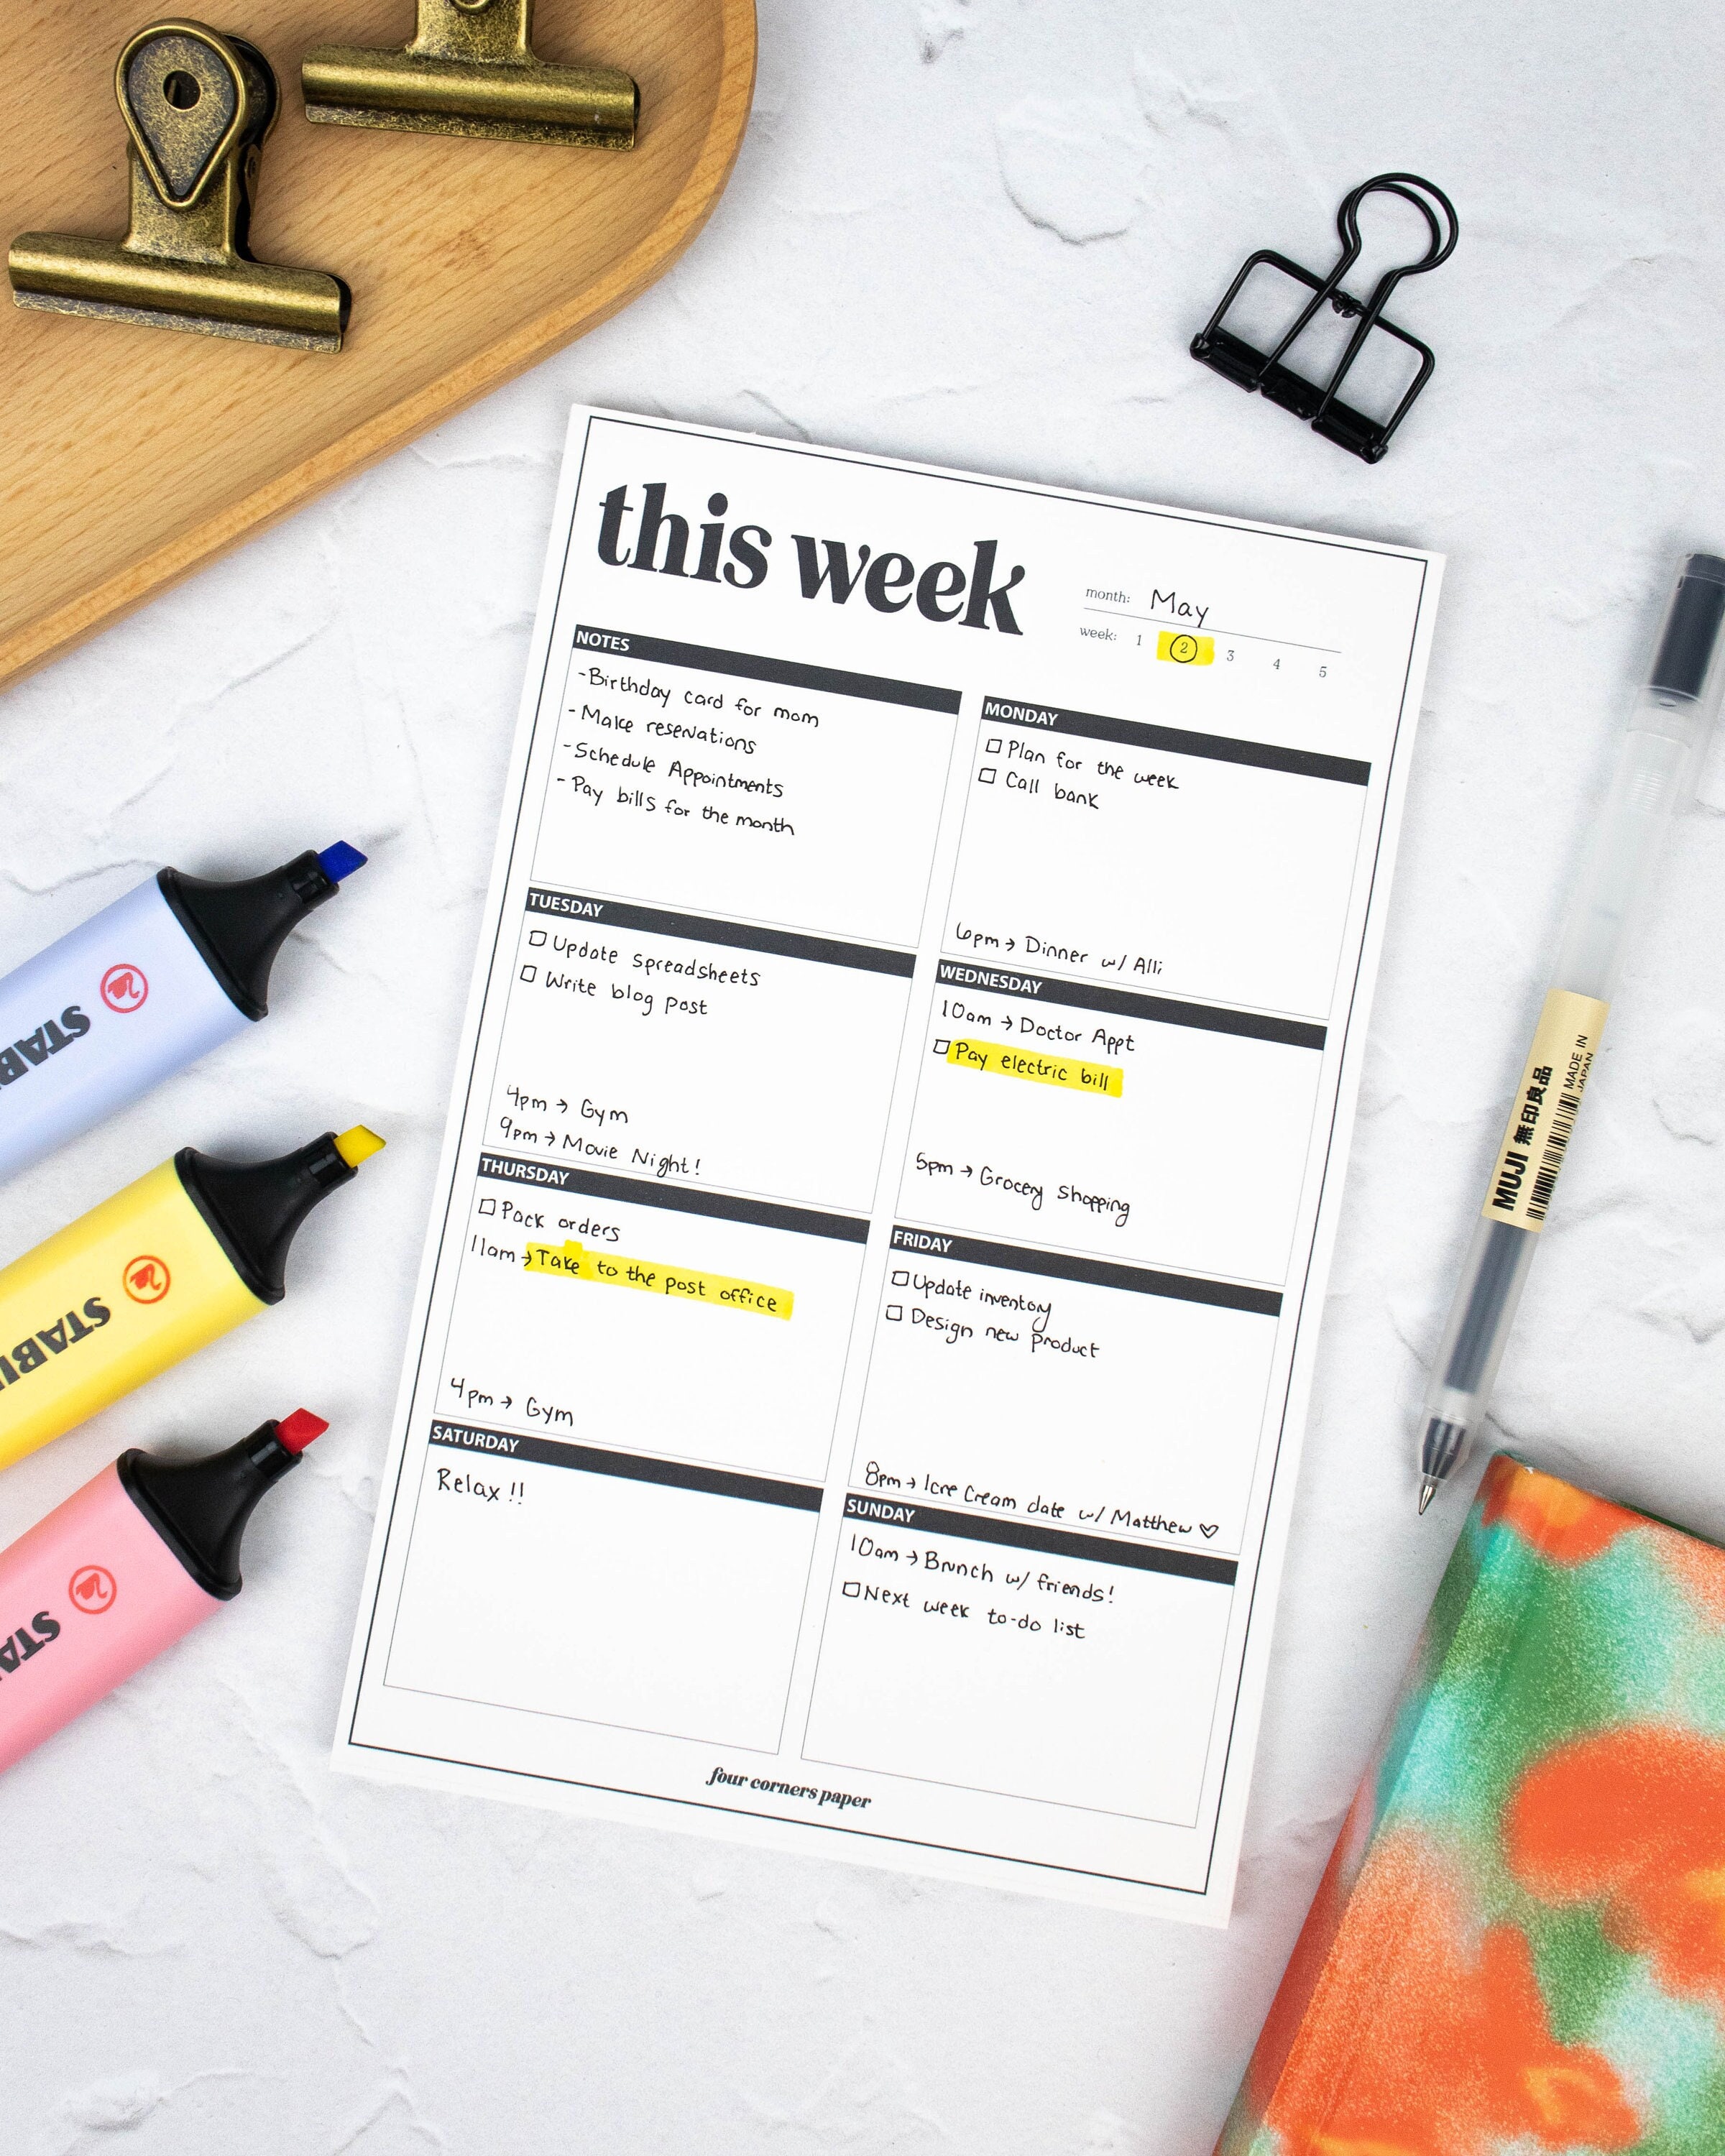 this week
month: May
week: 1 2 3 4 5
NOTES
-Birthday card for mom
-Make reservations
-Schedule Appointments
-Pay bills for the month
MONDAY
Plan for the week
Call bank
6pm → Dinner w/ Alli
TUESDAY
Update spreadsheets
Write blog post
4pm → Gym
9pm → Movie Night!
WEDNESDAY
10am → Doctor Appt
Pay electric bill
5pm → Grocery Shopping
THURSDAY
Pack orders
11am → Take to the post office
4pm → Gym
FRIDAY
Update inventory
Design new product
8pm → Icre Cream date w/ Matthew ♡
SATURDAY
Relax!!
SUNDAY
10am → Brunch w/ friends!
Next week to-do list
four corners paper
STAB
STABI
STA
MUJI 無印良品
MADE IN
JAPAN